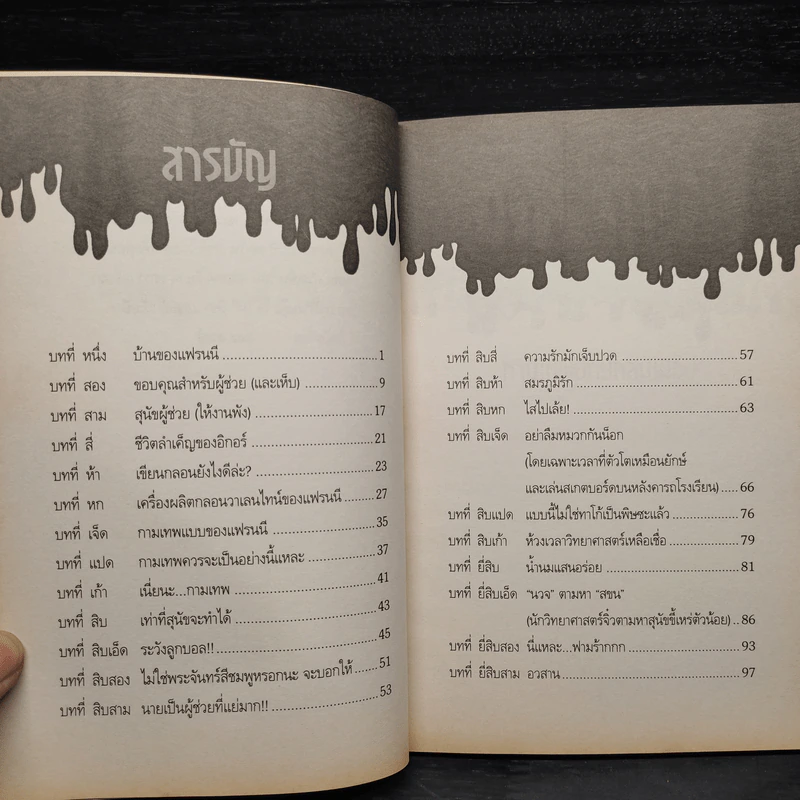 สารบัญ
บทที่ หนึ่ง บ้านของแฟรนนี ........................................1
บทที่ สอง ขอบคุณสำหรับผู้ช่วย (และเห็บ) ....................9
บทที่ สาม สุนัขผู้ช่วย (ให้งานพัง) ..............................17
บทที่ สี่ ชีวิตลำเค็ญของอิกอร์ ..................................21
บทที่ ห้า เขียนกลอนยังไงดีล่ะ? ..............................23
บทที่ หก เครื่องผลิตกลอนวาเลนไทน์ของแฟรนนี .........27
บทที่ เจ็ด กามเทพแบบของแฟรนนี ............................35
บทที่ แปด กามเทพควรจะเป็นอย่างนี้แหละ ..................37
บทที่ เก้า เนี่ยนะ...กามเทพ ......................................41
บทที่ สิบ เท่าที่สุนัขจะทำได้ ....................................43
บทที่ สิบเอ็ด ระวังลูกบอล!! ........................................45
บทที่ สิบสอง ไม่ใช่พระจันทร์สีชมพูหรอกนะ จะบอกให้ .......51
บทที่ สิบสาม นายเป็นผู้ช่วยที่แย่มาก!! ..........................53
บทที่ สิบสี่ ความรักมักเจ็บปวด ................................57
บทที่ สิบห้า สมรภูมิรัก ............................................61
บทที่ สิบหก ไสไปเล้ย! ............................................63
บทที่ สิบเจ็ด อย่าลืมหมวกกันน็อก
(โดยเฉพาะเวลาที่ตัวโตเหมือนยักษ์
และเล่นสเกตบอร์ดบนหลังคารถโรงเรียน) .....66
บทที่ สิบแปด แบบนี้ไม่ใช่ทาโก้เป็นพิษซะแล้ว ..................76
บทที่ สิบเก้า ห้วงเวลาวิทยาศาสตร์เหลือเชื่อ ....................79
บทที่ ยี่สิบ น้ำนมแสนอร่อย ......................................81
บทที่ ยี่สิบเอ็ด “นวจ” ตามหา “สขน”
(นักวิทยาศาสตร์จิ๋วตามหาสุนัขขี้เหร่ตัวน้อย) ..86
บทที่ ยี่สิบสอง นี่แหละ...ฟามร้ากกก ..............................93
บทที่ ยี่สิบสาม อวสาน ................................................97